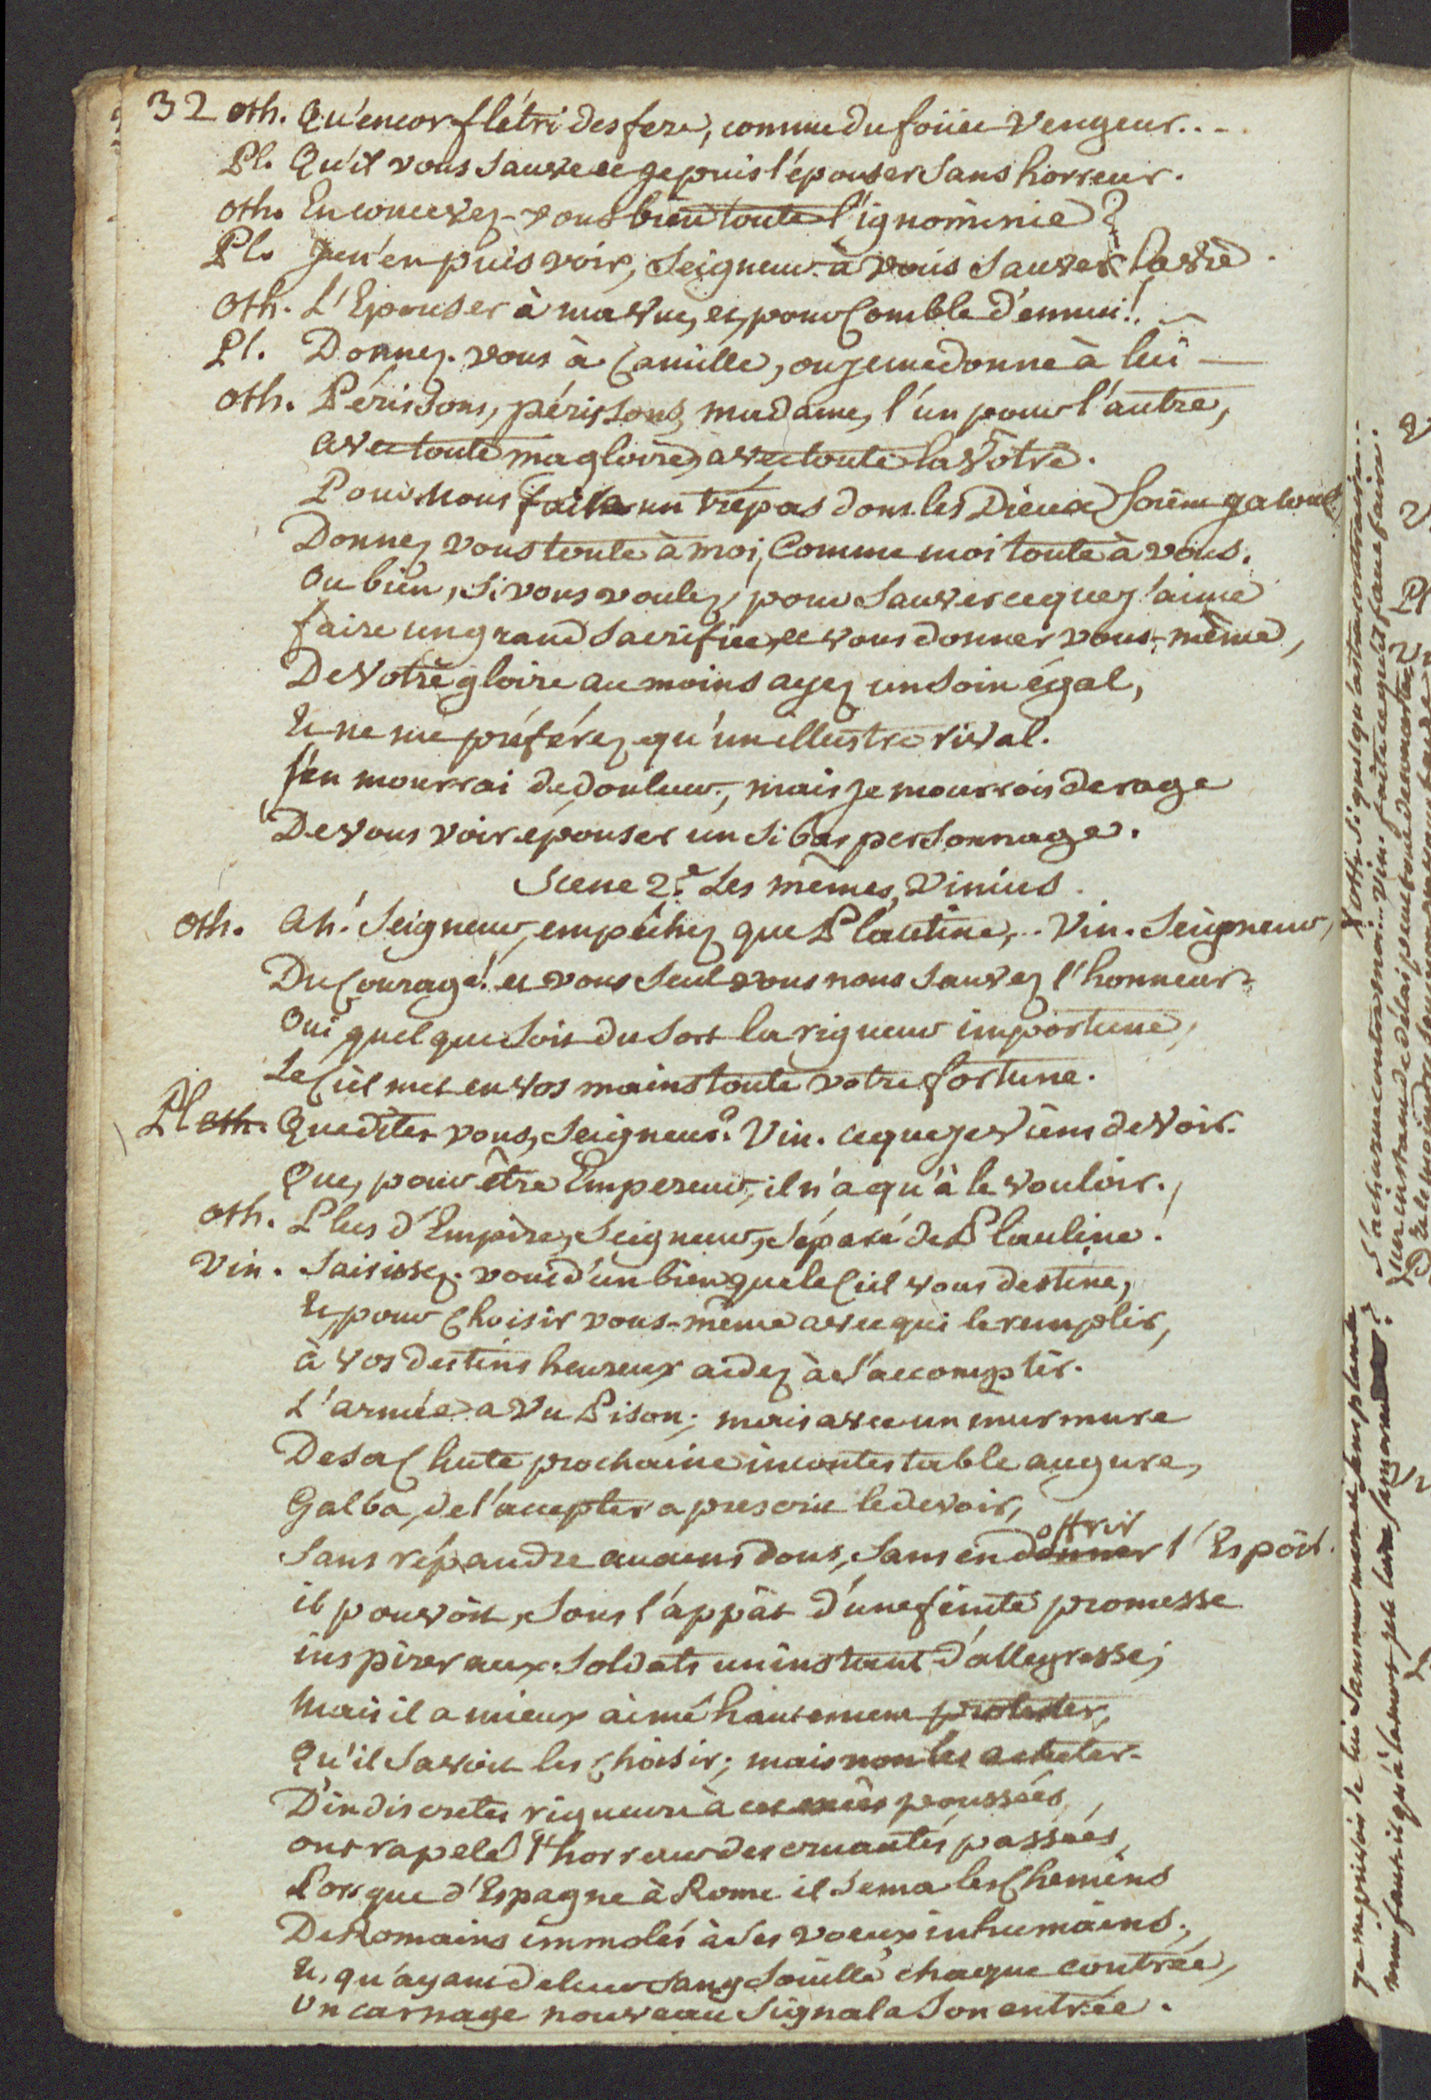 32 Oth. Qu'encor flétri des fers, comme du fouèt vengeur...
Pl. Qu'il vous sauve et je puis l'épouser sans horreur.
Oth. En concevez-vous bien toute l'ignominie?
Pl. Je n'en puis voir, Seigneur à vous sauver la vie.
Oth. L'Epouser à ma vue, et, pour Comble d'ennui!
Pl. Donnez-vous à Camille, ou je me donne à lui —
Oth. Périssons, périssons, madame, l'un pour l'autre,
avec toute ma gloire, avec toute la Votre.
Pour nous faire un trépas dont les Dieux soient jaloux
Donnez vous toute à moi, Comme moi toute à vous.
Ou bien, si vous voulez, pour sauver ce que j'aime
faire un grand sacrifice, et vous donner vous-même,
De Votre gloire au moins ayez un soin égal,
Et ne me préférez qu'un illustre rival.
J'en mourrai de douleur, mais je mourrois de rage
De vous voir épouser un si bas personnage.
Scene 2.e Les mêmes, Vinius.
Oth. Ah! Seigneur, empêchez que Plautine... Vin. Seigneur,
Du Courage! et vous seul vous nous sauvez l'honneur.
Oui quel que soit du sort la rigueur importune,
Le Ciel met en vos mains toute votre fortune.
Pl Oth. Que dites vous, Seigneur? Vin. ce que je viens de Voir.
Que, pour être Empereur, il n'a qu'à le vouloir.
Oth. Plus d'Empire, Seigneur, séparé de Plautine.
Vin. Saisissez-vous d'un bien que le Ciel vous destine,
Et, pour Choisir vous-même avec qui le remplir,
à vos destins heureux aidez à s'accomplir.
L'armée a Vu Pison; mais avec un murmure
De sa Chute prochaine incontestable augure,
Galba, de l'accepter a prescrit le devoir,
Sans répandre aucuns dons, sans en donner offrir l'Espoir.
il pouvoit, sous l'appât d'une feinte promesse
inspirer aux Soldats un instant d'allegresse;
Mais il a mieux aimé hautement protester,
Qu'il savoit les Choisir; mais non les acheter.
D'indiscretes rigueurs à cet excès poussées,
ont rapelé l'horreur des cruautés passées,
Lorsque d'Espagne à Rome il sema les Chemins
De Romains immolés à ses voeux inhumains;
Et, qu'ayant de leur sang souillé chaque contrée,
Un carnage nouveau signala son entrée.